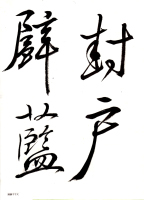 封户
辟藍